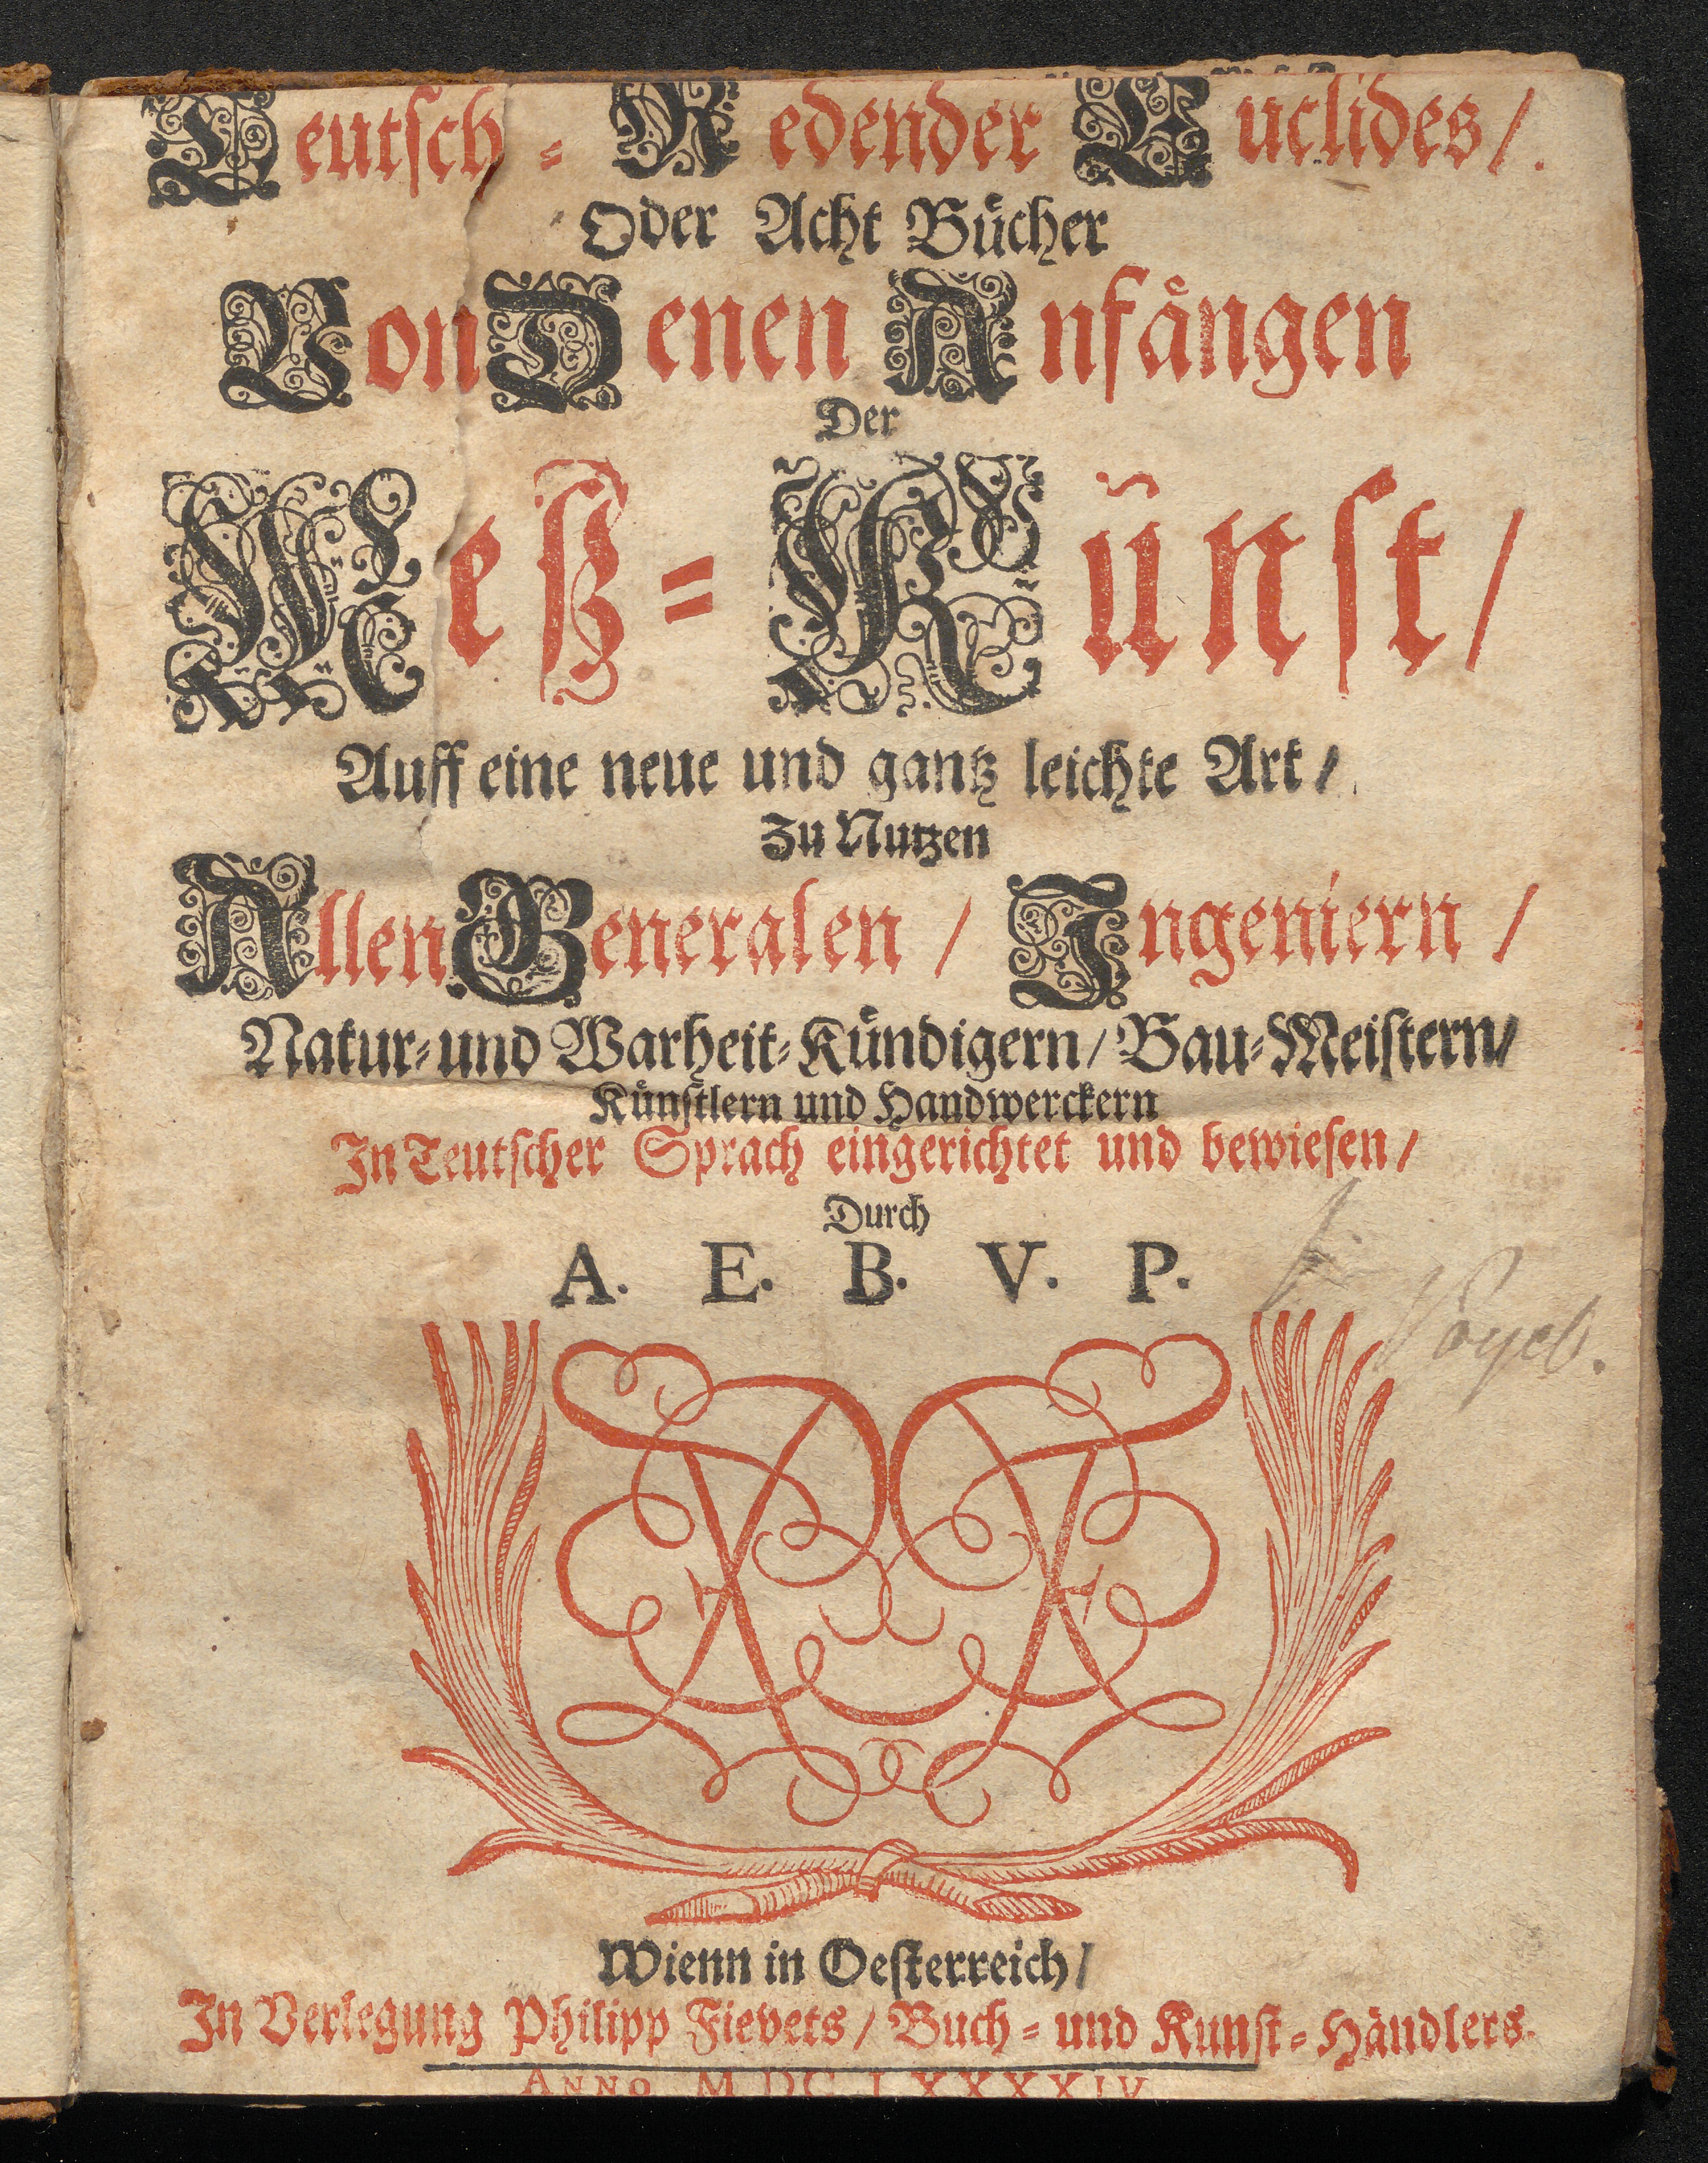 Teutsch-Redender Euclides/
Oder Acht Bücher
Von Denen Anfängen
Der
Meß-Künst/
Auff eine neue und gantz leichte Art/
Zu Nutzen
Allen Generalen/ Ingeniern/
Natur-und Warheit-Kündigern/ Bau-Meistern/
Künstlern und Handwerckern
In Teutscher Sprach eingerichtet und bewiesen/
Durch
A. E. B. V. P.
Wienn in Oesterreich/
In Verlegung Philipp Fievets/ Buch-und Kunst-Händlers.
ANNO MDCLXXXXIV